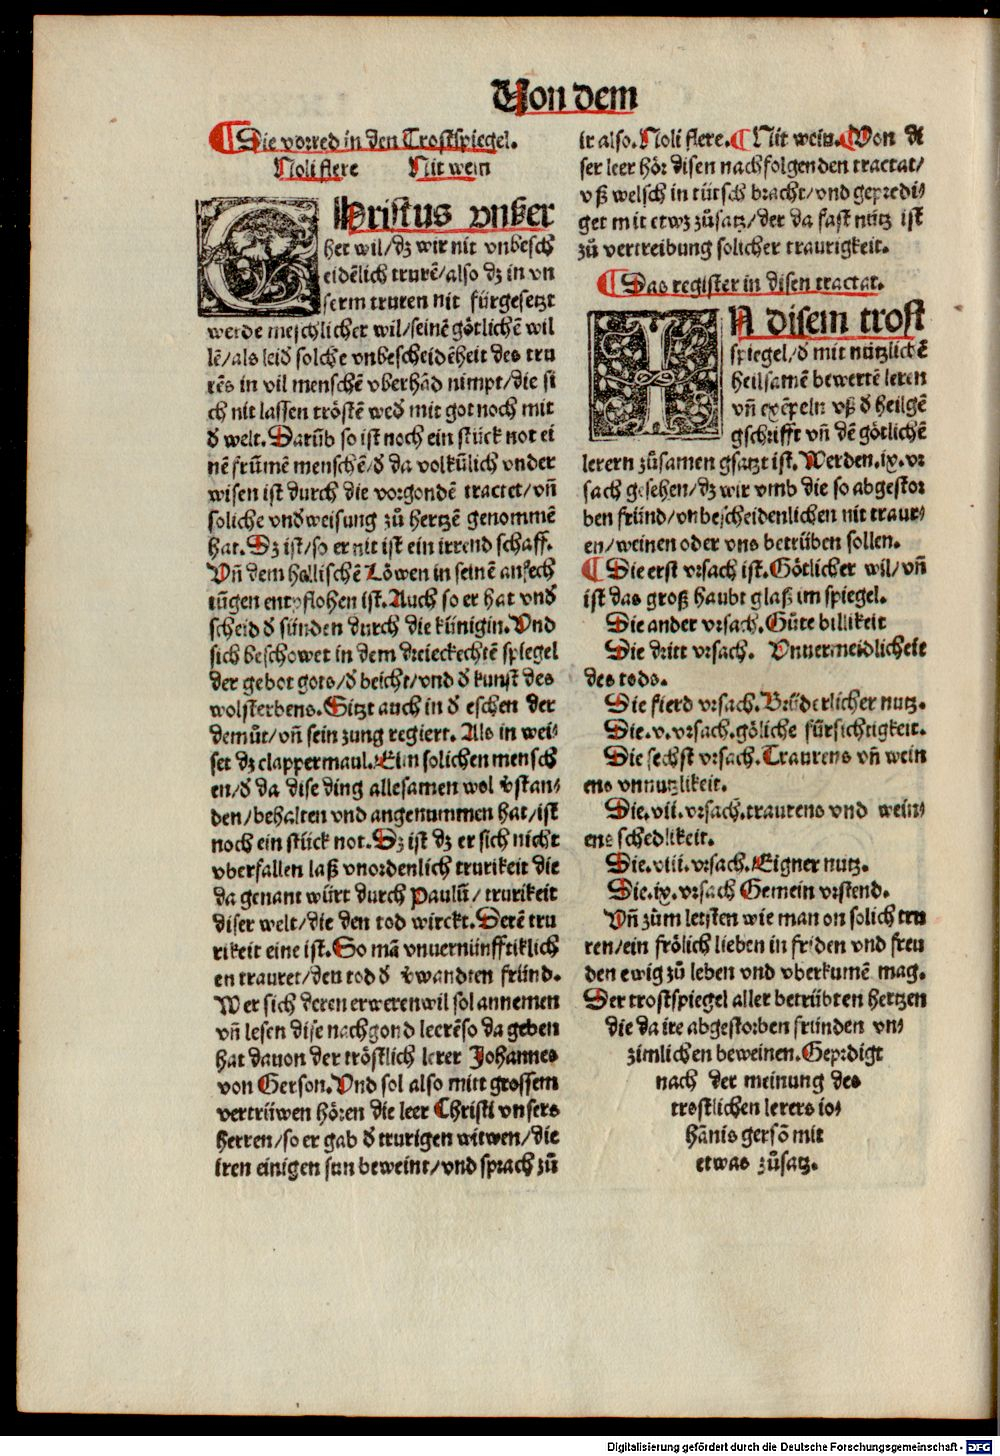 Von dem
¶ Die vorred in den Trostspiegel.
Noli flere Nit wein
CHristus vnßer
her wil/dz wir nit vnbesch
eidēlich trurē/also dz in vn
serm truren nit fürgesetzt
werde meschlicher wil/seinē götlichē wil
lē/als leid solche vnbescheidēheit des tru
rēs in vil menschē vberhād nimpt/die si
ch nit lassen tröstē wed mit got noch mit
d welt. Darūb so ist noch ein stück not ei
nē frūmē menschē/d da volkūlich vnder
wisen ist durch die vorgondē tractet/vñ
soliche vndweisung zů hertzē genommē
hat. Dz ist/so er nit ist ein irrend schaff.
Vñ dem hellischē Löwen in seinē anfech
tūgen entpflohen ist. Auch so er hat vnd
scheid d sünden durch die künigin. Vnd
sich beschowet in dem dreieckechtē spiegel
der gebot gots/d beicht/vnd d kunst des
wolsterbens. Sitzt auch in d eschen der
demůt/vñ sein zung regiert. Als in wei⸗
set dz clappermaul. Eim solichen mensch
en/d da dise ding allesamen wol vstan⸗
den/behalten vnd angenummen hat/ist
noch ein stück not. Dz ist dz er sich nicht
vberfallen laß vnordenlich trurikeit die
da genant würt durch Paulū/trurikeit
diser welt/die den tod wirckt. Derē tru
rikeit eine ist. So mā vnuernünfftiklich
en trauret/den tod d vwandten fründ.
Wer sich deren erweren wil sol annemen
vñ lesen dise nachgond leerē so da geben
hat dauon der tröstlich lerer Johannes
von Gerson. Vnd sol also mitt grossem
vertrüwen hören die leer Christi vnsers
herren/so er gab d trurigen witwen/die
iren einigen sun beweint/vnd sprach zů
ir also. Noli flere. ¶ Nit wein. ¶ Von di
ser leer hör disen nachfolgenden tractat/
vß welsch in tütsch bracht/vnd gepredi⸗
get mit etwz zůsatz/der da fast nütz ist
zů vertreibung solicher traurigkeit.
¶ Das register in disen tractat.
IN disem trost
spiegel/d mit nützlichē
heilsamē bewertē leren
vñ exēpeln vß d heilgē
gschrifft vñ dē götlichē
lerern zůsamen gsatzt ist. Werden .ix. vr
sach gesehen/dz wir vmb die so abgestor
ben fründ/vnbescheidenlichen nit traur⸗
en/weinen oder vns betrüben sollen.
¶ Die erst vrsach ist. Götlicher wil/vñ
ist das groß haubt glaß im spiegel.
Die ander vrsach. Güte billikeit
Die dritt vrsach. Vnuermeidlicheit
des tods.
Die fierd vrsach. Brüderlicher nutz.
Die .v. vrsach. göliche fürsichtigkeit.
Die sechst vrsach. Traurens vñ wein
ens vnnutzlikeit.
Die .vii. vrsach. traurens vnd wein⸗
ens schedlikeit.
Die .viii. vrsach. Eigner nutz.
Die .ix. vrsach Gemein vrstend.
Vñ zům letsten wie man on solich tru
ren/ein frölich lieben in friden vnd freu
den ewig zů leben vnd vberkumē mag.
Der trostspiegel aller betrübten hertzen
die da ire abgestorben fründen vn⸗
zimlichen beweinen. Geprdigt
nach der meinung des
trostlichen lerers io⸗
hānis gersō mit
etwas zůsatz.
Digitalisierung gefördert durch die Deutsche Forschungsgemeinschaft - DFG